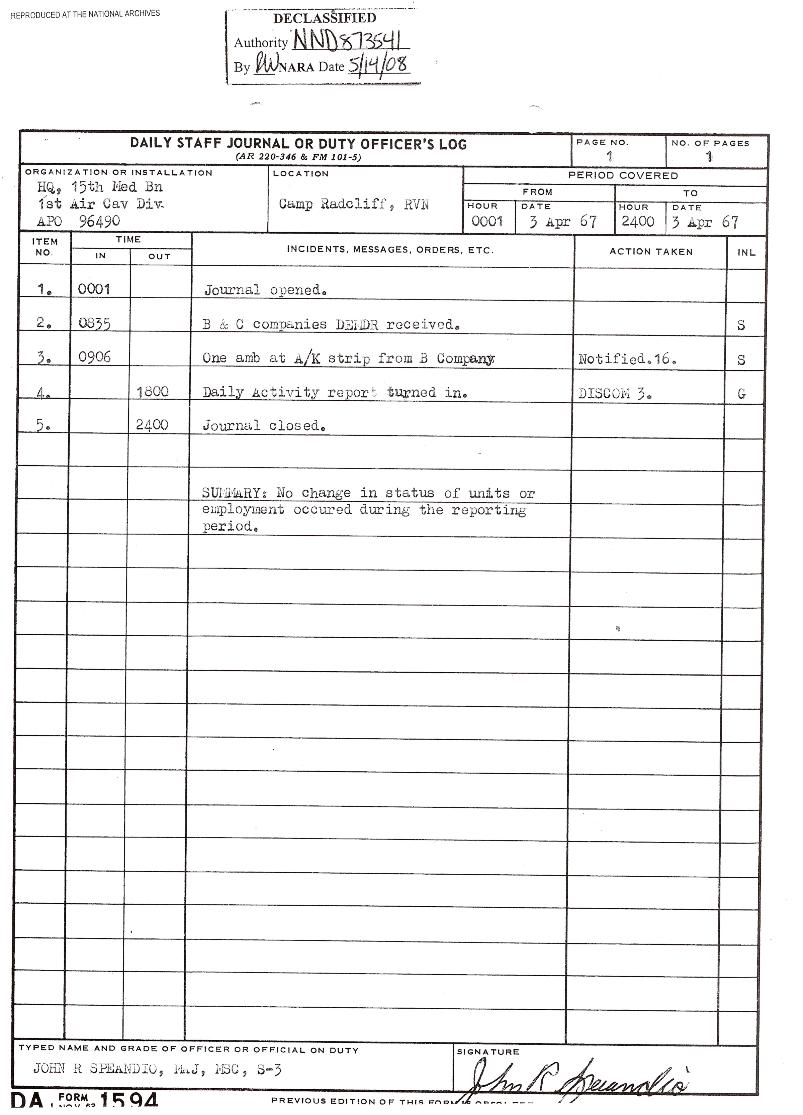 REPRODUCED AT THE NATIONAL ARCHIVES
DECLASSIFIED
Authority NND873541
By NARA Date 5/14/08
DAILY STAFF JOURNAL OR DUTY OFFICER'S LOG
(AR 220-346 & FM 101-5)
PAGE NO.
1
NO. OF PAGES
1
ORGANIZATION OR INSTALLATION
HQ, 15th Med Bn
1st Air Cav Div.
APO 96490
LOCATION
Camp Radcliff, RVN
PERIOD COVERED
FROM
TO
HOUR
DATE
HOUR
DATE
0001
3 Apr 67
2400
3 Apr 67
ITEM NO.
TIME
IN
OUT
INCIDENTS, MESSAGES, ORDERS, ETC.
ACTION TAKEN
INL
1. 0001 Journal opened.
2. 0835 B & C companies received. S
3. 0906 One amb at A/K strip from B Company Notified.16. S
4. 1800 Daily Activity report turned in. DISCOM 3. G
5. 2400 Journal closed.
SUMMARY: No change in status of units or
employment occured during the reporting
period.
TYPED NAME AND GRADE OF OFFICER OR OFFICIAL ON DUTY
JOHN R SPEANDIO, MAJ, MSC, S-3
SIGNATURE
John R Speandio
DA FORM 1594
1 NOV 62
PREVIOUS EDITION OF THIS FORM IS OBSOLETE